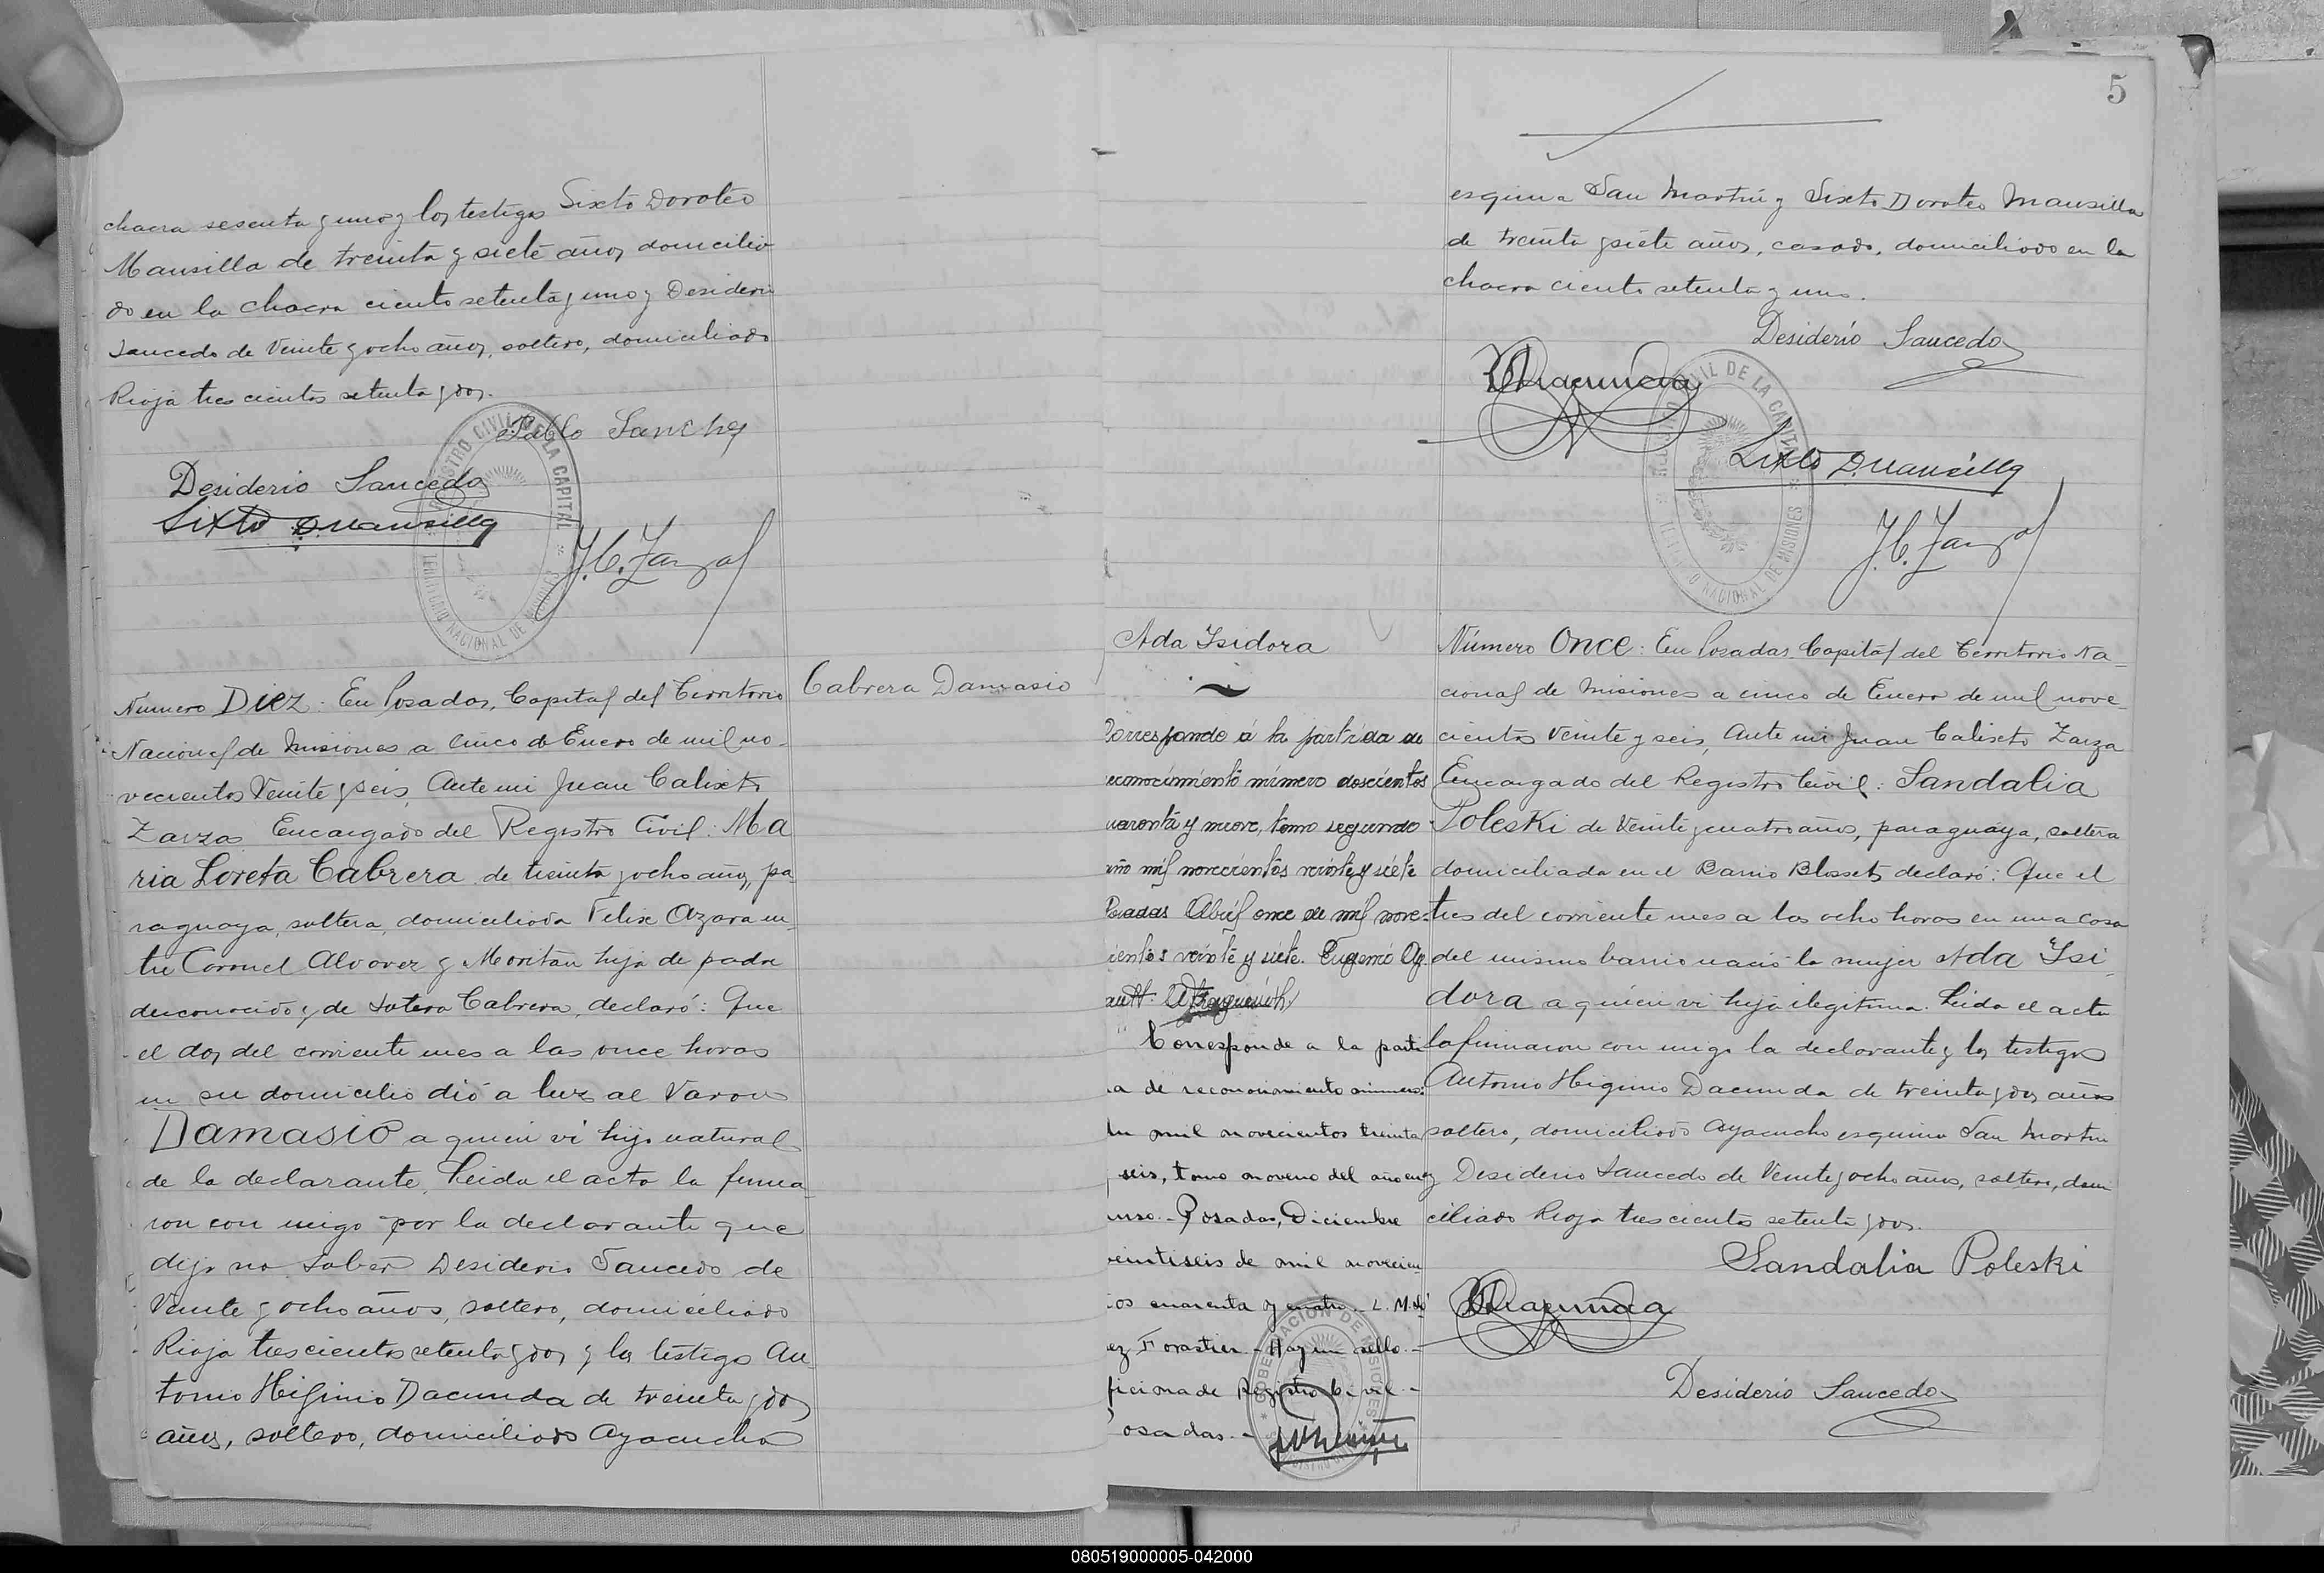 chacra sesenta y uno y los testigos Sixto Doroteo
Mansilla de treinta y siete años domicilia
do en la chacra ciento setenta y uno y Desiderio
Saucedo de Veinte y ocho años, soltero, domiciliado
Rioja tres cientos setenta y dos.
Pablo Sanchez
Desiderio Saucedo
Sixto D. Mansilla
REGISTRO CIVIL DE LA CAPITAL
TERRITORIO NACIONAL DE MISIONES
J. C. Zarza
Número Diez: En Posadas, Capital del Territorio
Nacional de Misiones a cinco de Enero de mil no-
vecientos Veinte y seis, Ante mi Juan Calixto
Zarza Encargado del Registro Civil: Ma
ria Loreta Cabrera de treinta y ocho años, pa-
raguaya, soltera, domiciliada Felix Azara en-
tre Coronel Alvarez y Moritan hija de padre
desconocido y de Sotera Cabrera, declaró: Que
el dos del corriente mes a las once horas
en su domicilio dió a luz al Varon
Damasio a quien vi hijo natural
de la declarante. Leida el acta la firma-
ron con migo por la declarante que
dijo no saber Desiderio Saucedo de
Veinte y ocho años, soltero, domiciliado
Rioja trescientos setenta y dos y los testigos An-
tonio Higinio Dacunda de treinta y dos
años, soltero, domiciliado Ayacucho
Cabrera Damasio
5
esquina San Martin y Sixto Doroteo Mansilla
de treinta y siete años, casado, domiciliado en la
chacra ciento setenta y uno.
Desiderio Saucedo
REGISTRO CIVIL DE LA CAPITAL
TERRITORIO NACIONAL DE MISIONES
Sixto D. Mansilla
J. C. Zarza
Ada Isidora
Corresponde á la partida de
econocimiento número doscientos
uarenta y nueve, tomo segundo
año mil novecientos veinte y siete
Posadas Abril once de mil nove-
cientos veinte y siete. Eugenio
Corresponde a la parti
a de reconocimiento número:
mil novecientos treinta
seis, tomo noveno del año en
urso. - Posadas, Diciembre
veintiseis de mil novecien
tos cuarenta y cuatro. - L. M.
ez Forastier. - Hay un sello. -
ficina de Registro Civil -
Posadas. -
GOBERNACION DE MISIONES
Número Once: En Posadas, Capital del Territorio Na-
cional de Misiones a cinco de Enero de mil nove-
cientos Veinte y seis, Ante mi Juan Calixto Zarza
Encargado del Registro Civil: Sandalia
Poleski de Veinte y cuatro años, paraguaya, soltera
domiciliada en el Barrio Blosset, declaró: Que el
tres del corriente mes a las ocho horas en una casa
del mismo barrio nació la mujer Ada Isi-
dora a quien vi hija ilegitima. Leida el acta
la firmaron con migo la declarante y los testigos
Antonio Higinio Dacunda de treinta y dos años
soltero, domiciliado Ayacucho esquina San Martin
y Desiderio Saucedo de Veinte y ocho años, soltero, domi
ciliado Rioja trescientos setenta y dos.
Sandalia Poleski
Desiderio Saucedo
080519000005-042000